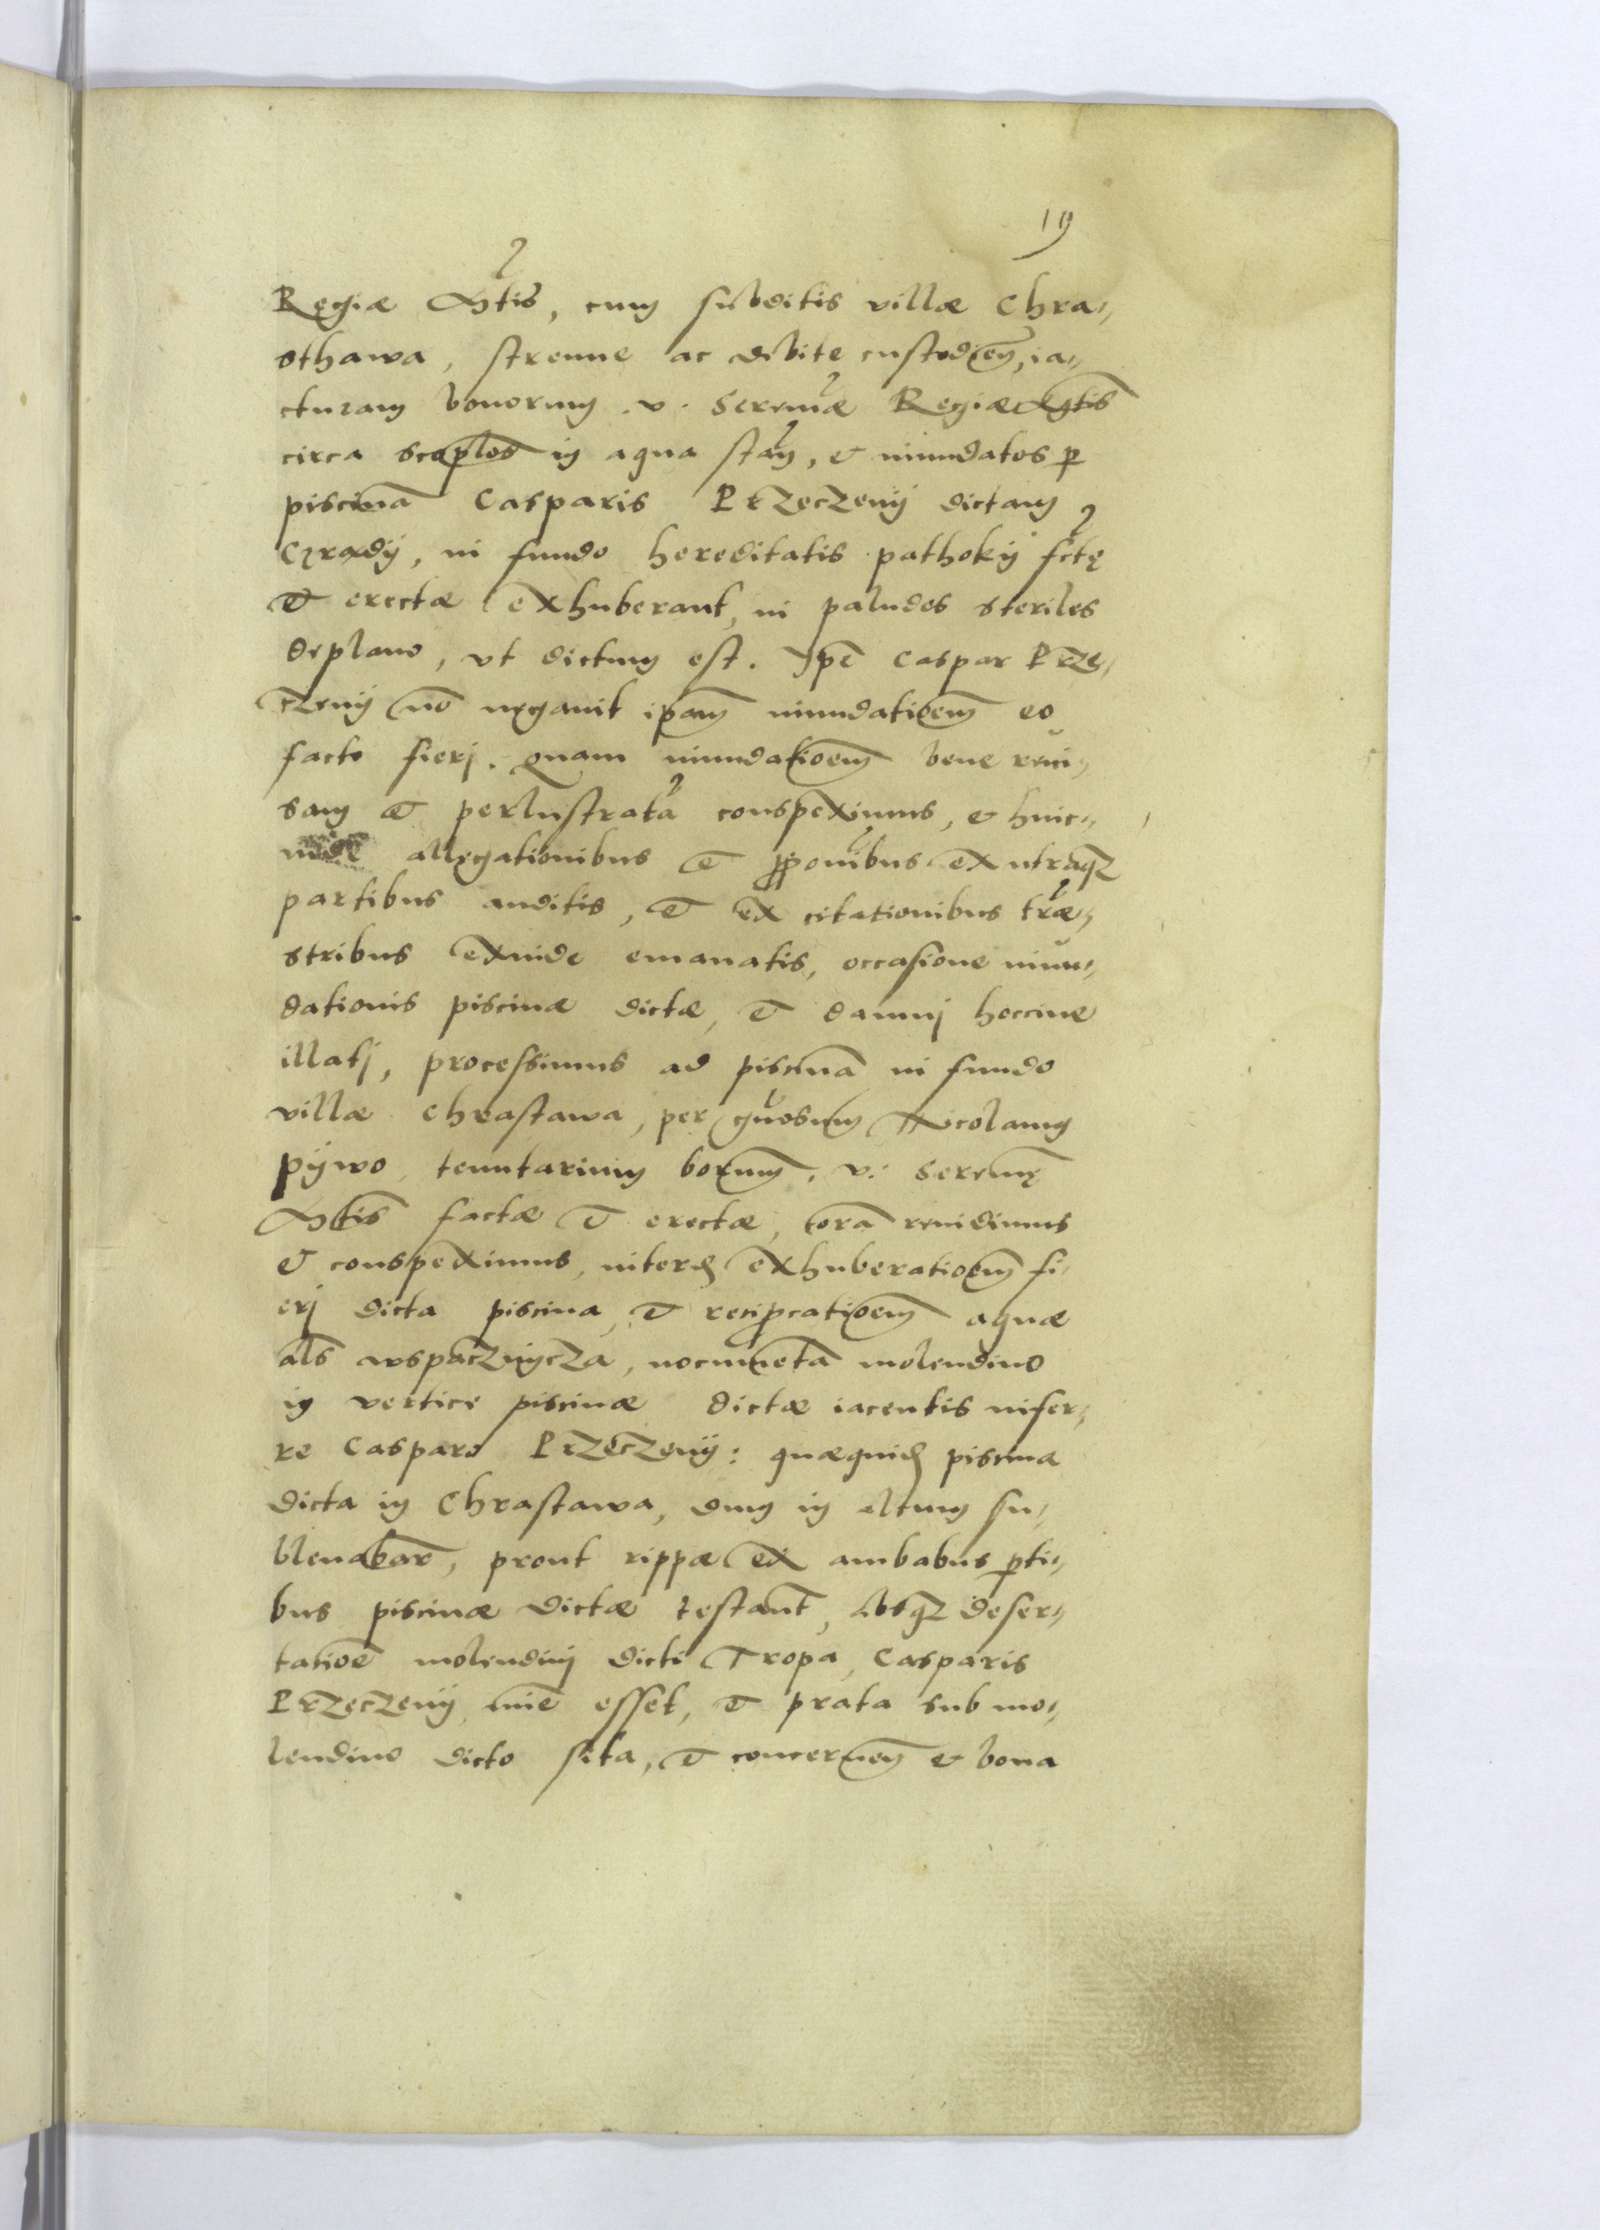 19
Regiæ Mtis, cum subditis villæ Chra-
sthawa, strenue ac debite custodien, ia-
cturam bonorum .v. Serenæ Regiæ Mtis
circa scoplos in aqua stan, et inundatos p
piscinā Casparis Przeczenÿ dictam
Czradÿ, in fundo hereditatis pathokÿ fctę
et erectæ exhuberant, in paludes steriles
deplano, vt dictum est. Ipē Caspar Prze-
czenÿ nō negauit ipam inundatioem eo
facto fierj. quam inundatioem bene reui-
sam et perlustratā conspeximus, et huic-
inde allegationibus et pponibus ex utraqz
partibus auditis, et ex citationibus træ-
stribus exinde emanatis, occasione inun-
dationis piscinæ dictæ, et damnj hoccine
illatj, processimus ad piscinā in fundo
villæ Chrastawa, per gnosum Nicolaum
pÿwo, tenutarium borum .v. Serenę
Mtis factæ et erectæ, coram reuidimus
et conspeximus, exhuberatioem fi-
erj dicta piscina, et reciprcatioem aquæ
als wspacznÿcza, nocumeta molendino
in vertice piscinæ dictæ iacentis infer-
re Casparo Przeczenÿ: quæquid piscina
dicta in Chrastawa, dum in altum su-
bleuabar, prout rippæ ex ambabus pti-
bus piscinæ dictæ testant, absqz deser-
tatioē molendinj dicti Tropa, Casparis
Przeczenÿ, esset, et prata sub mo-
lendino dicto sita, et concernen et bona